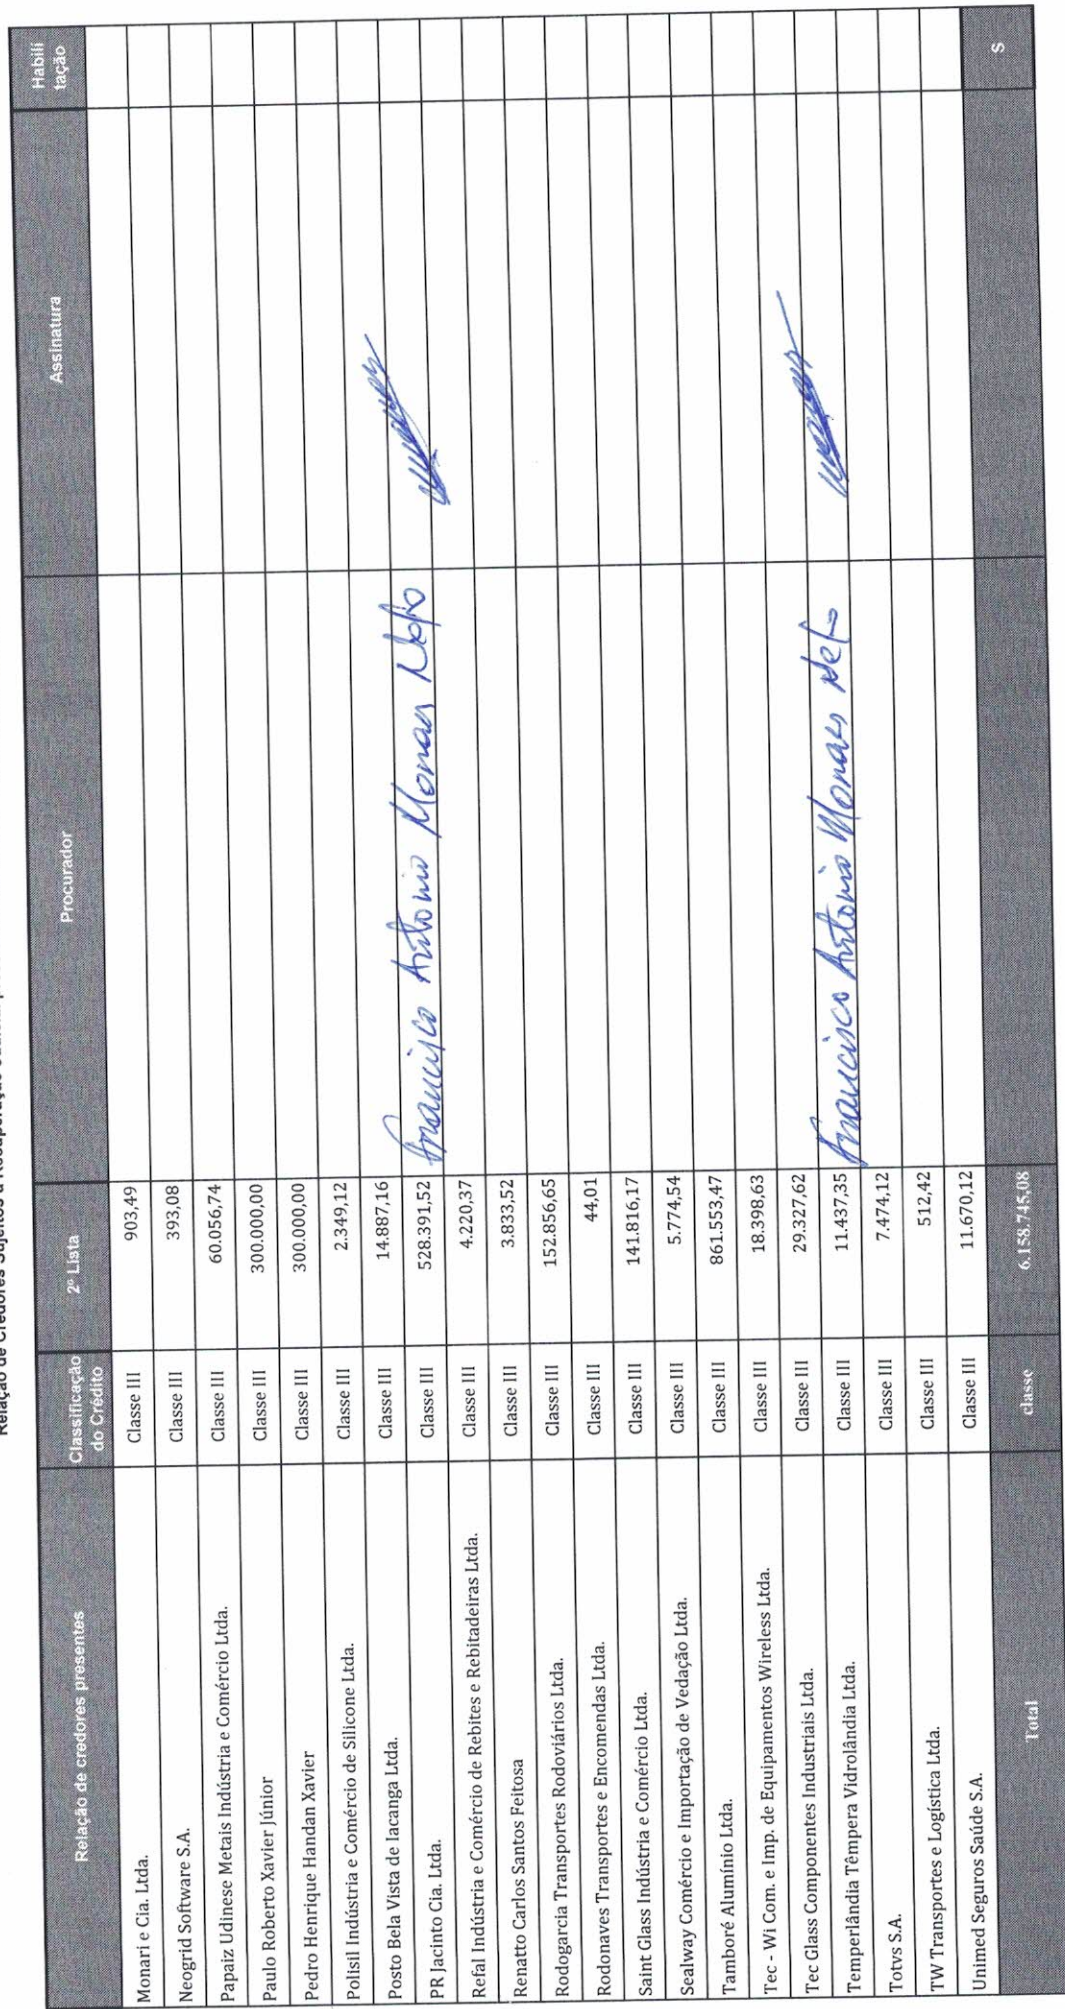 Relação de credores presentes Classificação do Crédito 2º Lista Procurador Assinatura Habili tação
Monari e Cia. Ltda. Classe III 903,49
Neogrid Software S.A. Classe III 393,08
Papaiz Udinese Metais Indústria e Comércio Ltda. Classe III 60.056,74
Paulo Roberto Xavier Júnior Classe III 300.000,00
Pedro Henrique Handan Xavier Classe III 300.000,00
Polisil Indústria e Comércio de Silicone Ltda. Classe III 2.349,12
Posto Bela Vista de Iacanga Ltda. Classe III 14.887,16
PR Jacinto Cia. Ltda. Classe III 528.391,52 Francisco Antonio Moraes Neto
Refal Indústria e Comércio de Rebites e Rebitadeiras Ltda. Classe III 4.220,37
Renatto Carlos Santos Feitosa Classe III 3.833,52
Rodogarcia Transportes Rodoviários Ltda. Classe III 152.856,65
Rodonaves Transportes e Encomendas Ltda. Classe III 44,01
Saint Glass Indústria e Comércio Ltda. Classe III 141.816,17
Sealway Comércio e Importação de Vedação Ltda. Classe III 5.774,54
Tamboré Alumínio Ltda. Classe III 861.553,47
Tec - Wi Com. e Imp. de Equipamentos Wireless Ltda. Classe III 18.398,63
Tec Glass Componentes Industriais Ltda. Classe III 29.327,62
Temperlândia Têmpera Vidrolândia Ltda. Classe III 11.437,35 Francisco Antonio Moraes Neto
Totvs S.A. Classe III 7.474,12
TW Transportes e Logística Ltda. Classe III 512,42
Unimed Seguros Saúde S.A. Classe III 11.670,12
Total classe 6.158.745,08 S